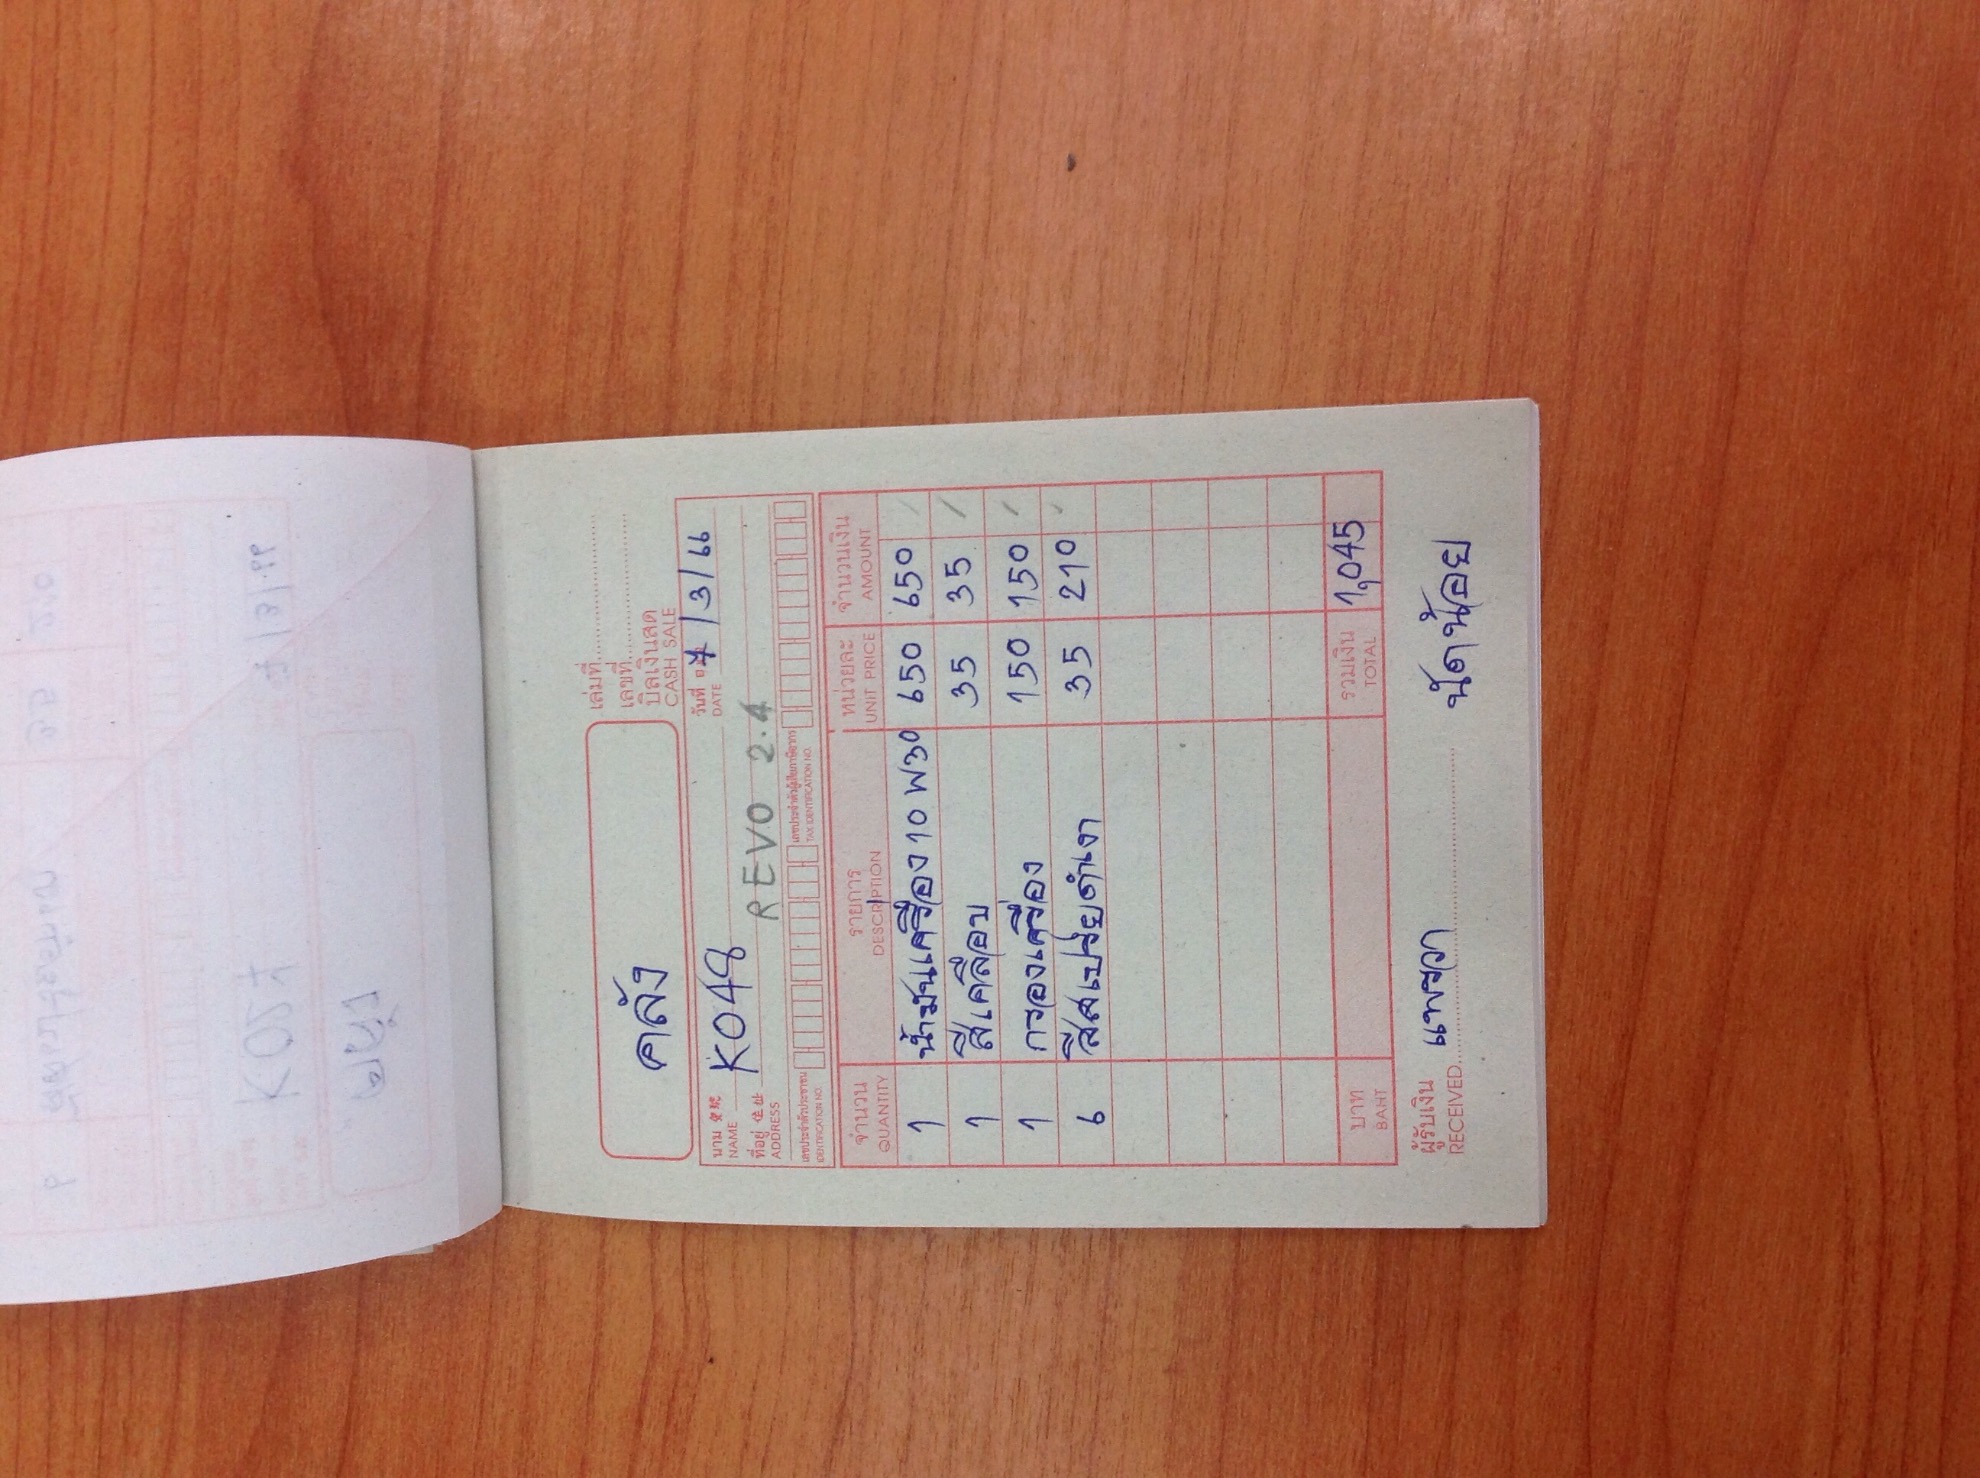 เล่มที่
เลขที่
คลัง
บิลเงินสด
CASH SALE
นาม K048 วันที่ 7/3/66
NAME DATE
ที่อยู่ REVO 2.4
ADDRESS
เลขประจำตัวประชาชน เลขประจำตัวผู้เสียภาษีอากร
IDENTIFICATION NO. TAX IDENTIFICATION NO.
จำนวน รายการ หน่วยละ จำนวนเงิน
QUANTITY DESCRIPTION UNIT PRICE AMOUNT
1 น้ำมันเครื่อง 10 W30 650 650
1 สีเคลือบ 35 35
1 กรองเครื่อง 150 150
6 สีสเปรยดำเงา 35 210
บาท รวมเงิน 1,045
BAHT TOTAL
ผู้รับเงิน แพรวา นัดน้อย
RECEIVED